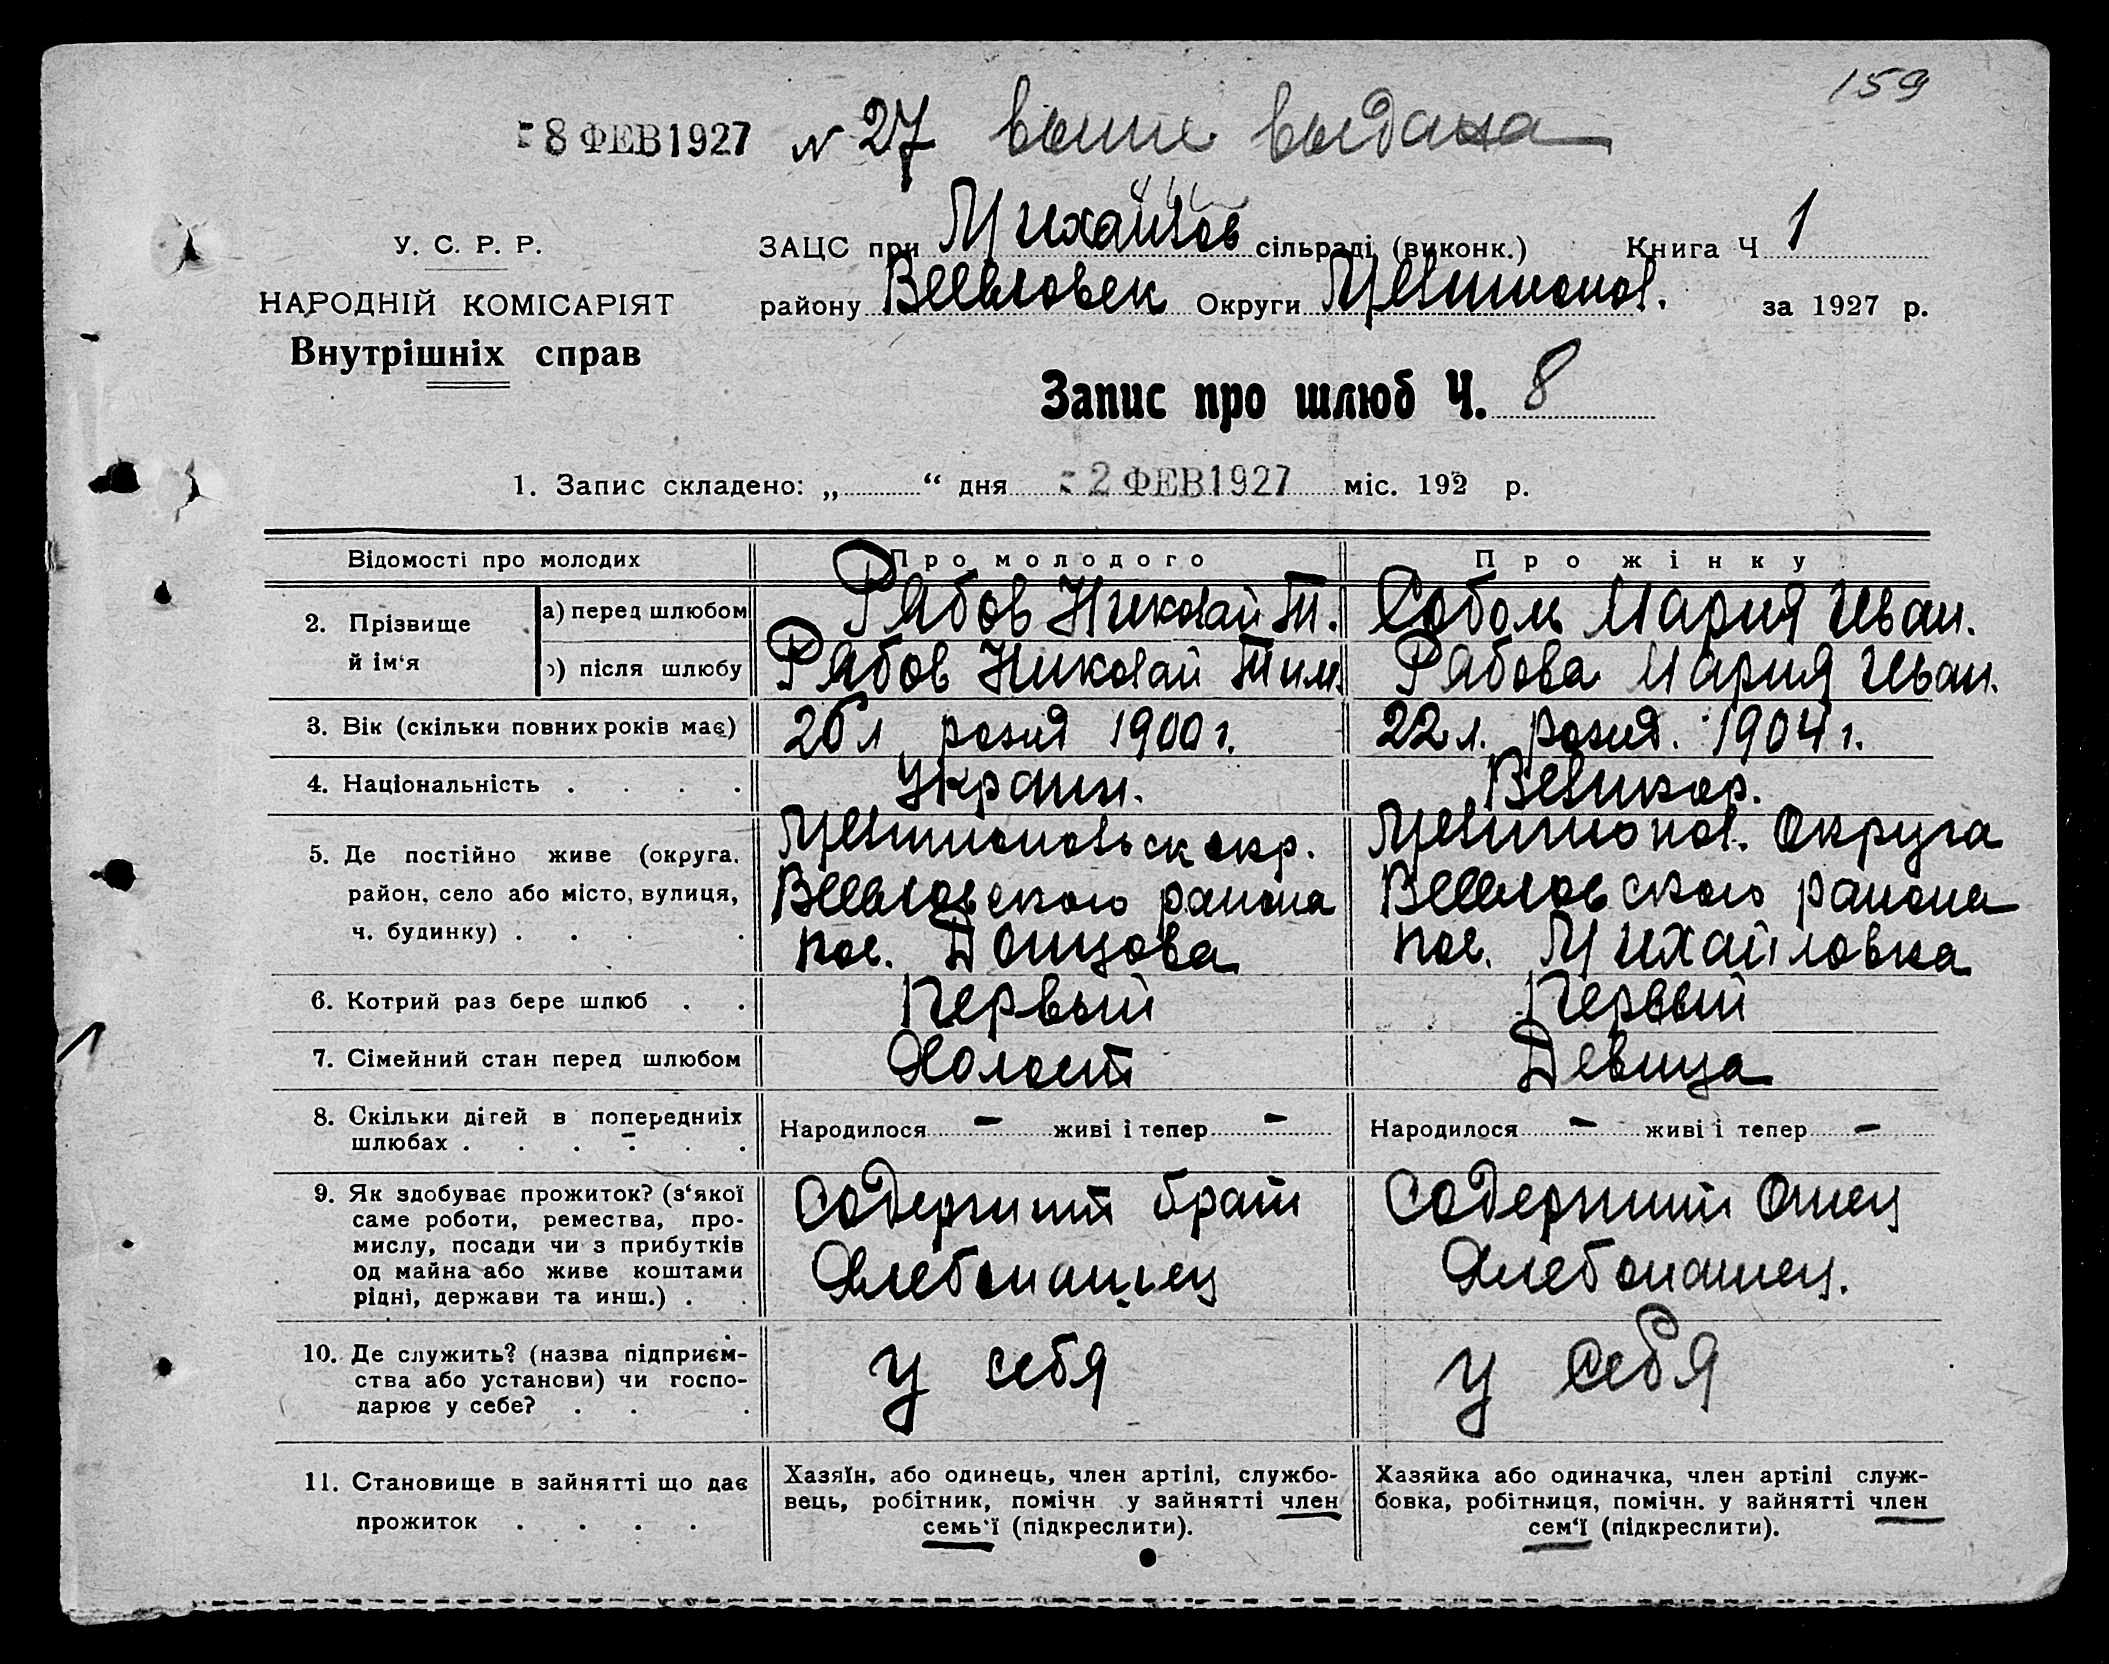 159
8 ФЕВ 1927 № 27 выпис выдана
У. С. Р. Р.
НАРОДНІЙ КОМІСАРІЯТ
Внутрішніх справ
ЗАЦС при Михайлов сільраді (виконк.) Книга Ч 1
району Веселовск Округи Мелитопол. за 1927 р.
Запис про шлюб Ч. 8
1. Запис складено: „ “ дня 2 ФЕВ 1927 міс. 192 р.
Відомості про молодих Про молодого Про жінку
2. Прізвище й ім‘я
а) перед шлюбом Рябов Николай Т. Соболь Мария Иван.
б) після шлюбу Рябов Николай Тим. Рябова Мария Иван.
3. Вік (скільки повних років має) 26 л рожд 1900 г. 22 л. рожд. 1904 г.
4. Національність . . . . Украин. Великор.
5. Де постійно живе (округа, Мелитопольск окр. Мелитопол. Округа
район, село або місто, вулиця, Веселовского района Веселовского района
ч. будинку) . . . . пос. Донцова пос. Михайловка
6. Котрий раз бере шлюб . . Первый Первый
7. Сімейний стан перед шлюбом Холост Девица
8. Скільки дітей в попередниіх
шлюбах . . . . . . Народилося – живі і тепер – Народилося – живі і тепер –
9. Як здобуває прожиток? (з‘якої
саме роботи, ремества, про-
мислу, посади чи з прибутків
од майна або живе коштами
рідні, держави та инш.) . .
Содержит брат
Хлебопашец
Содержит Отец
Хлебопашец.
10. Де служить? (назва підприєм-
ства або установи) чи госпо-
дарює у себе? . . .
у себя
у себя
11. Становище в зайнятті що дає
прожиток . . . .
Хазяїн, або одинець, член артілі, службо-
вець, робітник, помічн у зайнятті член
семь‘ї (підкреслити).
Хазяйка або одиначка, член артілі служ-
бовка, робітниця, помічн. у зайнятті член
сем‘ї (підкреслити).